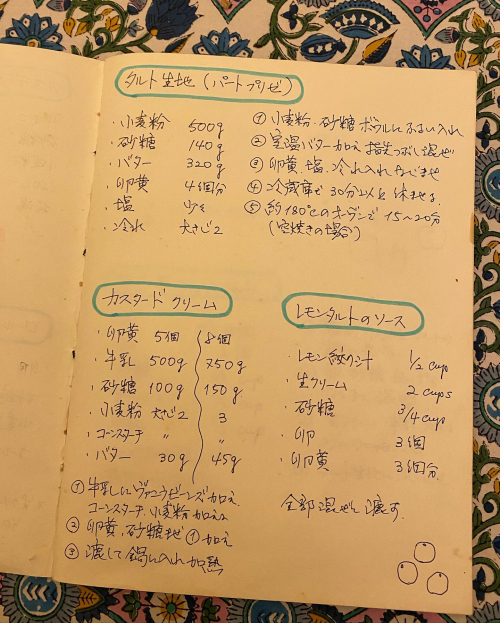 タルト生地(パートブリゼ)
・小麦粉 500g
・砂糖 140g
・バター 320g
・卵黄 4個分
・塩 少々
・冷水 大さじ2
① 小麦粉、砂糖 ボウルにふるい入れ
② 室温バター加え 指先つぶし混ぜ
③ 卵黄、塩、冷水入れ混ぜ
④ 冷蔵庫で30分以上休ませる。
⑤ 約180℃のオーブンで15〜20分
(空焼きの場合)
カスタードクリーム
・卵黄 5個 8個
・牛乳 500g 750g
・砂糖 100g 150g
・小麦粉 大さじ2 3
・コーンスターチ 〃 〃
・バター 30g 45g
① 牛乳にヴァニラビーンズ加え
コーンスターチ、小麦粉加える
② 卵黄、砂糖まぜ ①加え
③ 漉して鍋に入れ加熱
レモンタルトのソース
・レモン絞り汁 1/2 cup
・生クリーム 2 cups
・砂糖 3/4 cup
・卵 3個
・卵黄 3個分
全部混ぜて漉す.